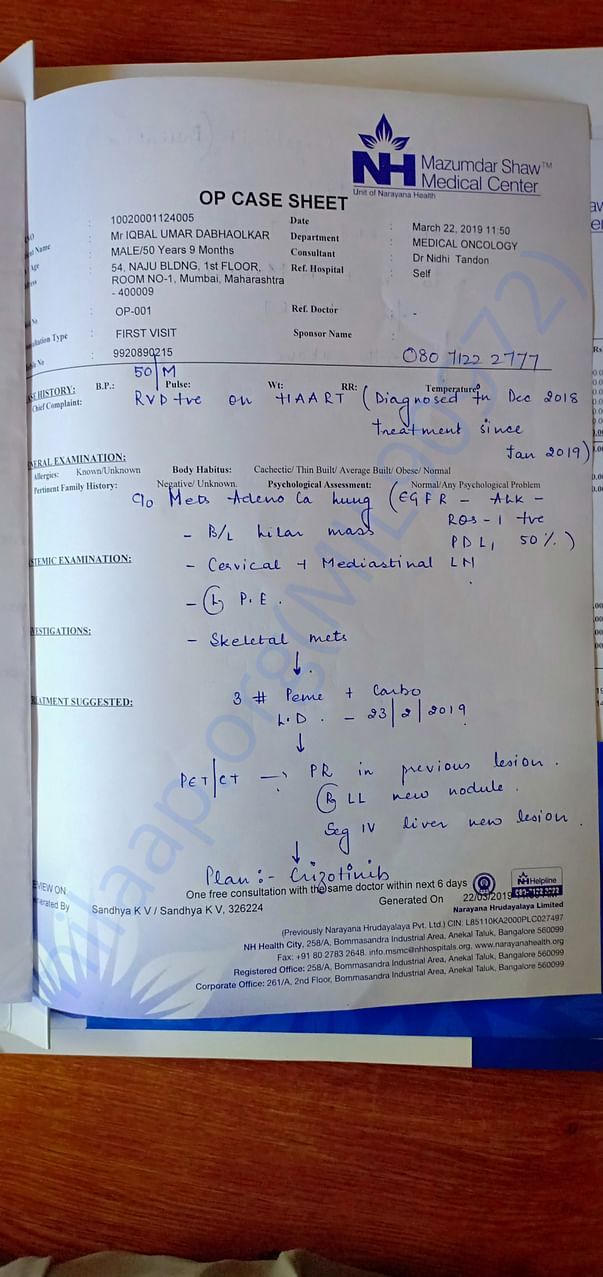 NH Mazumdar Shaw™
Medical Center
Unit of Narayana Health
OP CASE SHEET
: 10020001124005 Date : March 22, 2019 11:50
Name : Mr IQBAL UMAR DABHAOLKAR Department : MEDICAL ONCOLOGY
Age : MALE/50 Years 9 Months Consultant : Dr Nidhi Tandon
: 54, NAJU BLDNG, 1st FLOOR, Ref. Hospital : Self
ROOM NO-1, Mumbai, Maharashtra
- 400009
No : OP-001 Ref. Doctor : -
ultation Type : FIRST VISIT Sponsor Name :
No : 9920890215 080 7122 2777
50/M
HISTORY: B.P.: Pulse: Wt: RR: Temperature:
Chief Complaint: RVD +ve on HAART (Diagnosed in Dec 2018
treatment since
Jan 2019)
NERAL EXAMINATION:
Allergies: Known/Unknown Body Habitus: Cachectic/ Thin Built/ Average Built/ Obese/ Normal
Pertinent Family History: Negative/ Unknown Psychological Assessment: Normal/Any Psychological Problem
c/o Mets Adeno Ca lung (EGFR - ALK -
ROS-1 +ve
- B/L hilar mass PDL1 50%.)
STEMIC EXAMINATION: - Cervical + Mediastinal LN
- (L) P.E.
ESTIGATIONS: - Skeletal mets
↓
EATMENT SUGGESTED: 3 # Peme + Carbo
L.D. - 23/2/2019
↓
PET/CT → PR in previous lesion.
(R) LL new nodule.
Seg IV liver new lesion.
↓
Plan:- Crizotinib
VIEW ON One free consultation with the same doctor within next 6 days
nerated By Sandhya K V / Sandhya K V, 326224 Generated On 22/03/2019
NH Helpline
080-7122 2222
Narayana Hrudayalaya Limited
(Previously Narayana Hrudayalaya Pvt. Ltd.) CIN: L85110KA2000PLC027497
NH Health City, 258/A, Bommasandra Industrial Area, Anekal Taluk, Bangalore 560099
Fax: +91 80 2783 2648. info.msmc@nhhospitals.org, www.narayanahealth.org
Registered Office: 258/A, Bommasandra Industrial Area, Anekal Taluk, Bangalore 560099
Corporate Office: 261/A, 2nd Floor, Bommasandra Industrial Area, Anekal Taluk, Bangalore 560099